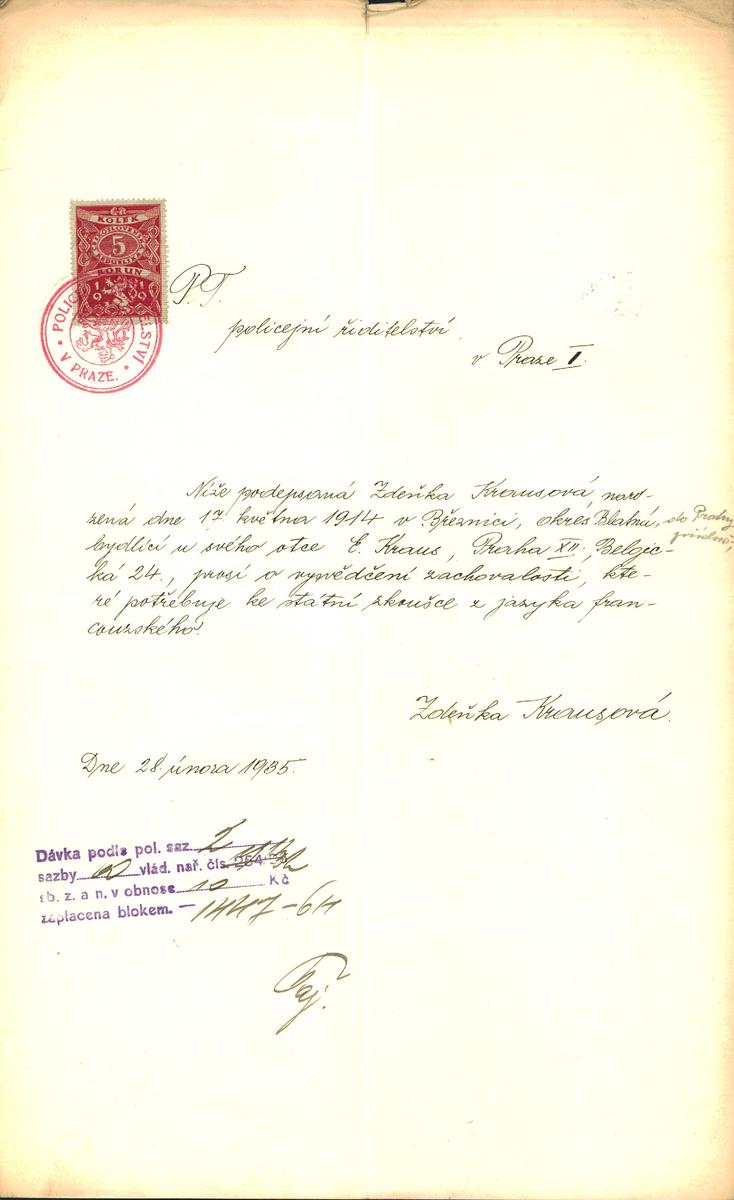 ČR
KOLEK
ČESKOSLOVENSKÁ
5
REPUBLIKA
KORUN
POLICEJNÍ ŘEDITELSTVÍ
V PRAZE.
P.T.
policejní řiditelství
v Praze I.
Níže podepsaná Zdeňka Krausová, naro-
zená dne 17. května 1914 v Březnici, okres Blatná,
do Prahy
bydlící u svého otce E. Kraus, Praha XII, Belgic-
ká 24., prosí o vysvědčení zachovalosti, kte-
ré potřebuje ke státní zkoušce z jazyka fran-
couzského.
Zdeňka Krausová.
Dne 28. února 1935.
Dávka podle pol. saz. 2
sazby a vlád. nař. čís. 254
sb. z. a n. v obnose 10 Kč
záplacena blokem. — 1447-64